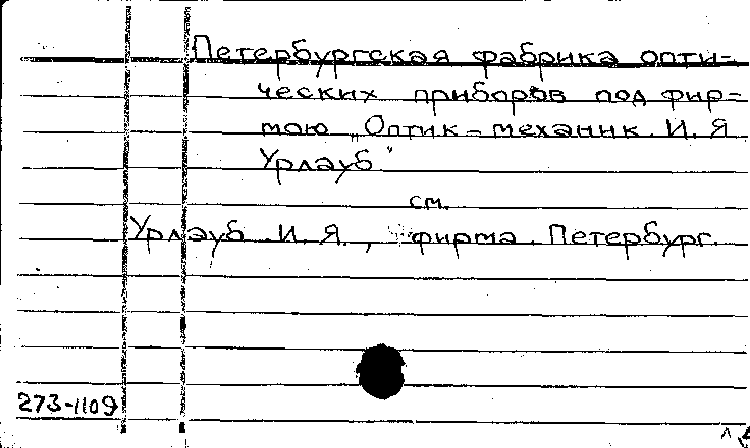 Петербургская фабрика опти-
ческих приборов под фир-
мою „Оптик-механик И. Я
Урлауб"
см.
Урлауб И. Я., фирма. Петербург.
273-1109